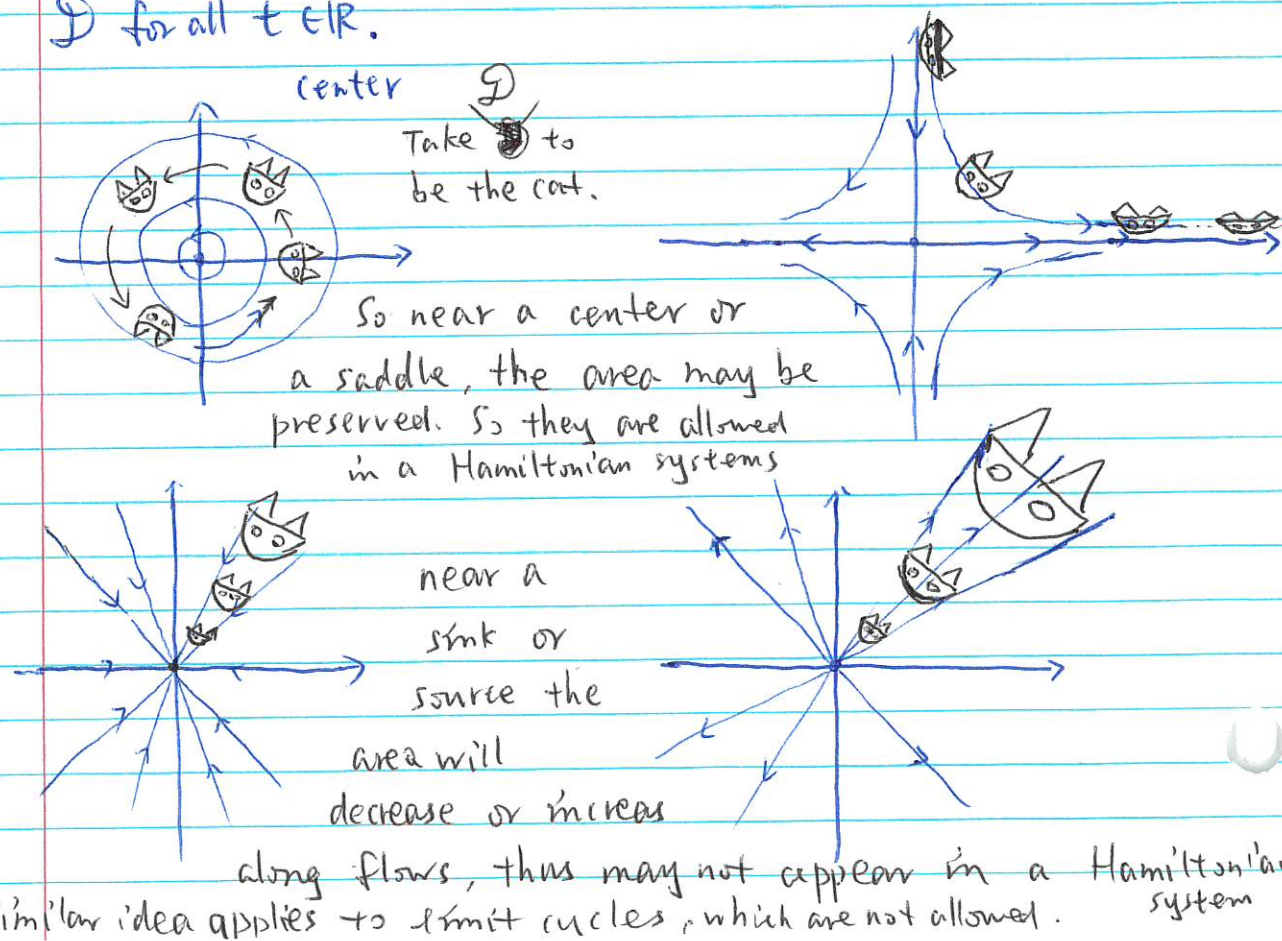 D for all t ∈ ℝ.
center
D
Take to
be the cat.
So near a center or
a saddle, the area may be
preserved. So they are allowed
in a Hamiltonian systems
near a
sink or
source the
area will
decrease or increas
along flows, thus may not appear in a Hamiltonia
system
imilar idea applies to limit cycles, which are not allowed.